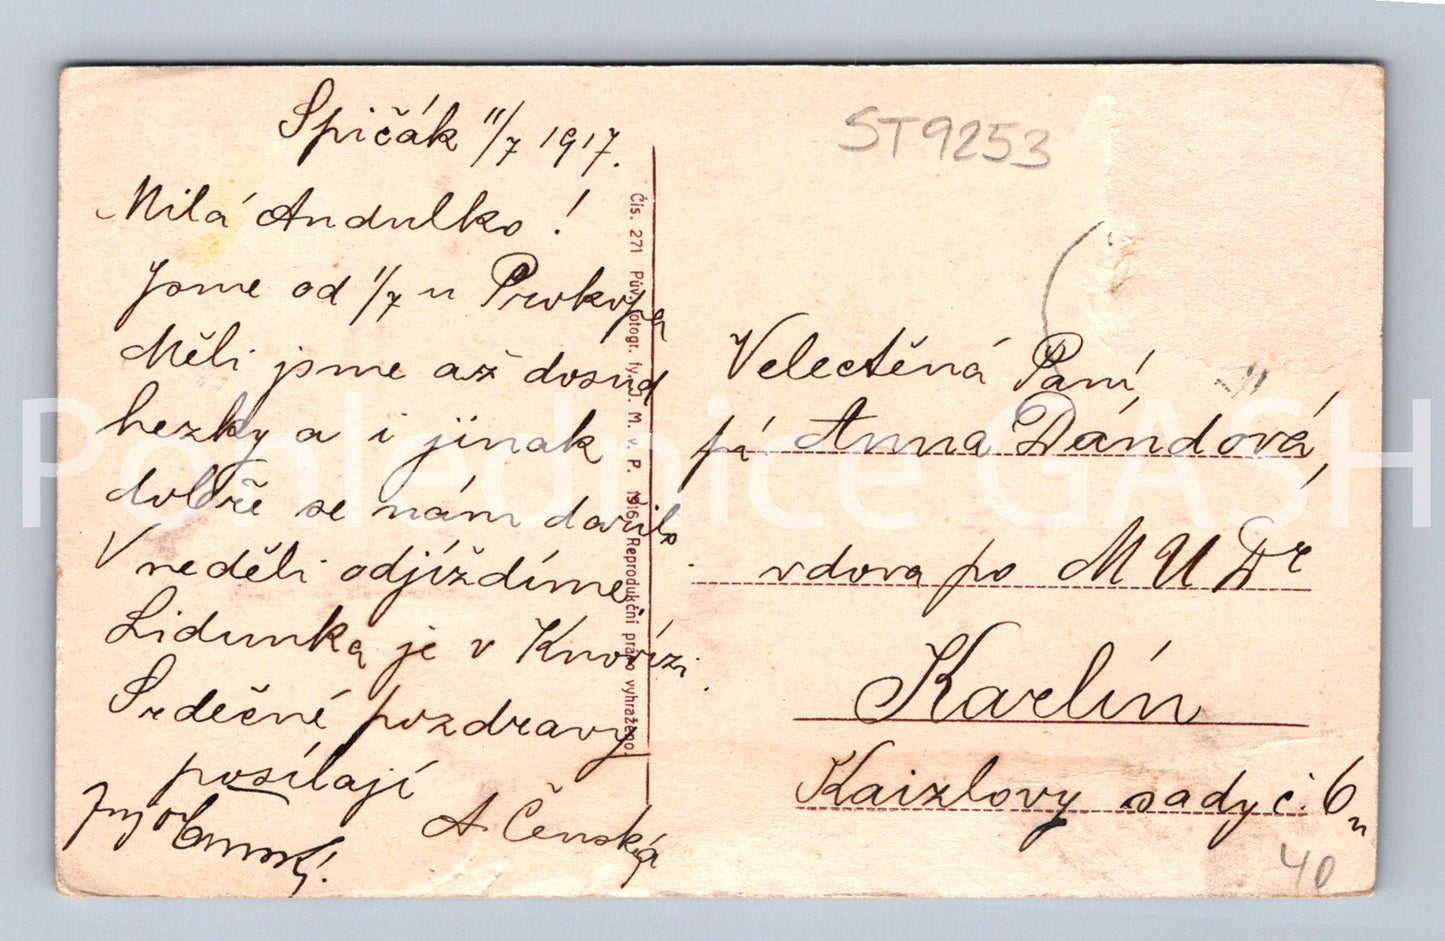 Spičák 11/7 1917.
Milá Andulko!
Jsme od 1/7 u Prokopa
Měli jsme až dosud
hezky a i jinak
dobře se nám dařilo.
V neděli odjíždíme
Lidunka je v Knovízi.
Srdečné pozdravy
posílají
A. Čenská
Čís. 271 Pův. fotogr. fy. J. M. v. P. 1916. Reprodukční právo vyhraženo.
ST9253
Velectěná Paní,
pí Anna Dándová,
vdova po MUDr
Karlín
Kaizlovy sady č. 6
40
Pohlednice GASH